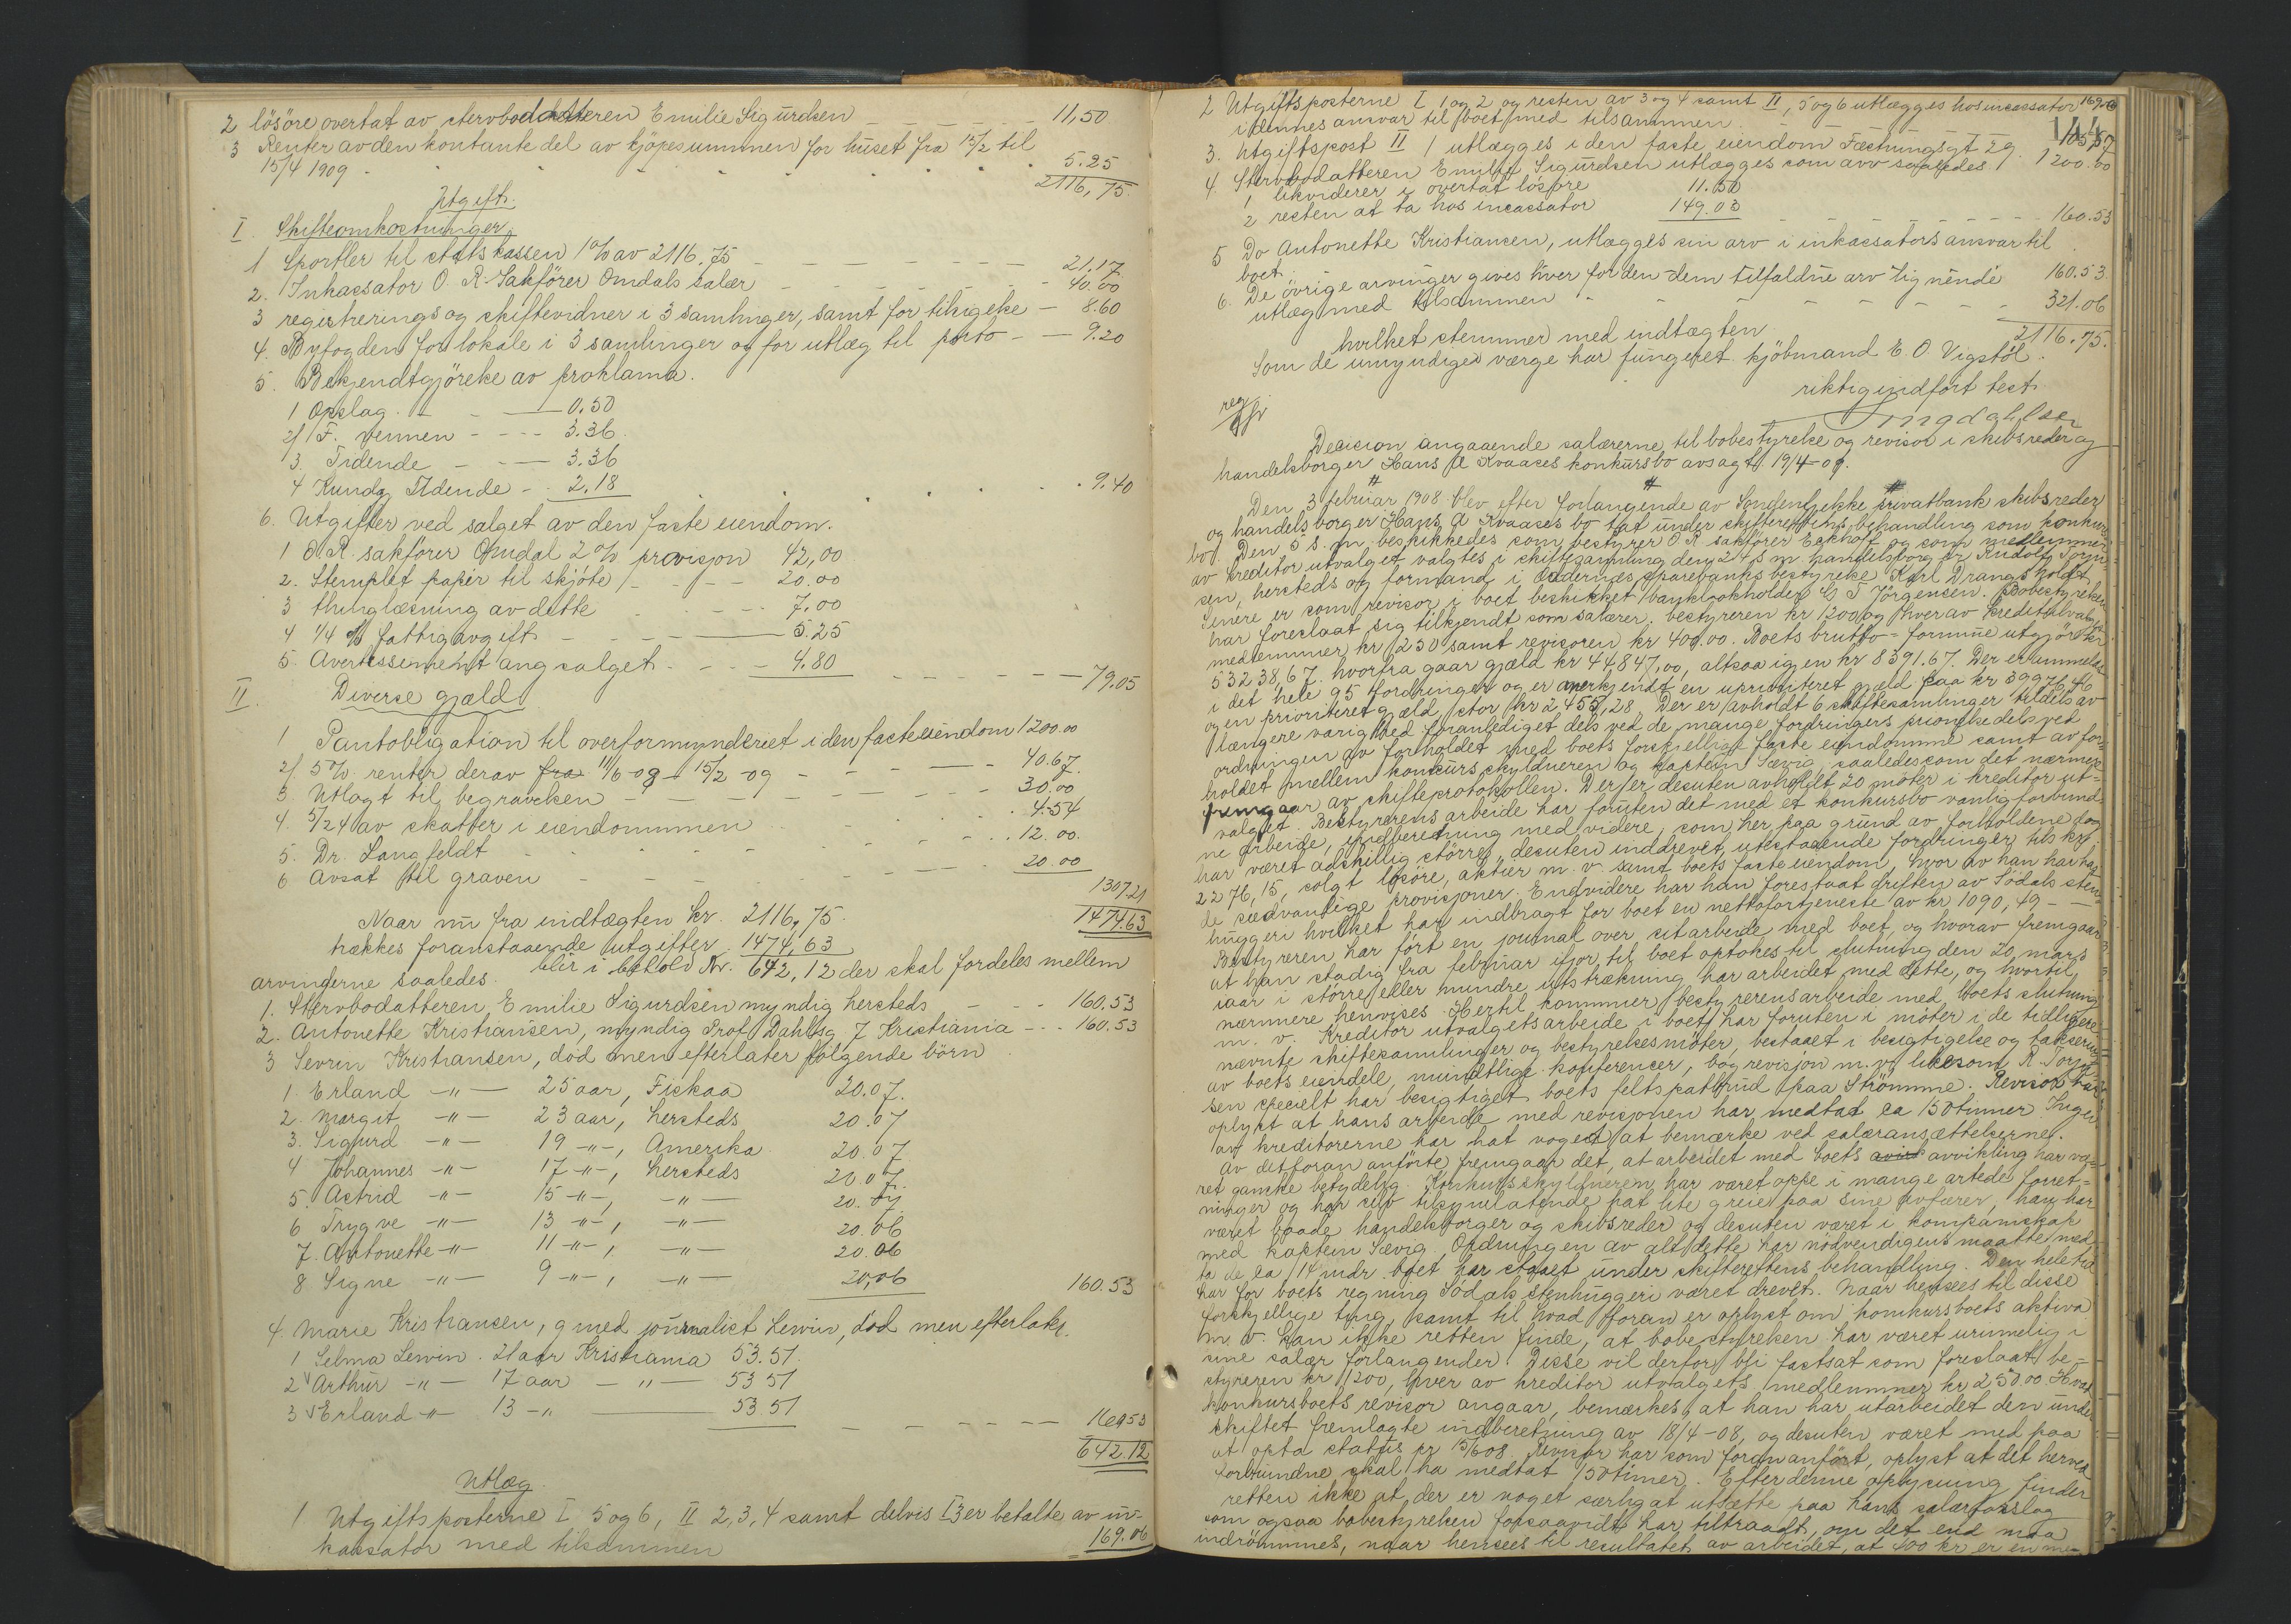 2 lösöre overtat av stervbodatteren Emilie Sigurdsen — — — — 11,50
3 Renter av den kontante del av kjöpesummen for huset fra 15/2 til
15/4 1909 5.25
2116,75.
Utgift.
I. Skifteomkostninger
1 Sportler til statskassen 1 % av 2116.75 — — — — 21.17
2. Inkassator O. R. Sakförer Omdals salær — — — — 40.00
3 registrerings og skiftevidner i 3 samlinger, samt for tilsigelse — 8.60
4. Byfogden for lokale i 3 samlinger og for utlæg til porto — — 9.20
5. Bekjendtgjörelse av proklama.
1 Opslag. — — 0.50
2/ F. vennen — — 3.36
3. Tidende — — 3.36
4 Kundg. Tidende — 2.18 9.40
6. Utgifter ved salget av den faste eiendom.
1 O. R. sakförer Omdal 2 % provisjon 42,00
2. Stemplet papir til skjöte — — 20.00
3 thinglæsning av dette — — 7.00
4 1/4 % fattigavgift — — 5.25
5. Avertissement ang salget — — 4.80 — — 79.05
II. Diverse gjæld
1 Pantobligation til overformynderiet i den faste eiendom 1200.00
2/ 5 % renter derav fra 11/6 -08 - 15/2 -09 — — 40.67.
3. Utlagt til begravelsen — — 30.00
4. 5/24 av skatter i eiendommen 4.54
5. Dr. Langfeldt 12.00.
6 Avsat til graven — — 20.00
1307.21
1474.63
Naar nu fra indtægten Kr. 2116,75.
trækkes foranstaaende utgifter 1474,63
blir i behold Kr. 642,12 der skal fordeles mellem
arvingerne saaledes.
1. Stervbodatteren Emilie Sigurdsen myndig hersteds — — 160.53
2. Antonette Kristiansen, myndig Prof. Dahlsg. 7 Kristiania — — 160.53
3 Sevrin Kristiansen, död men efterlater fölgende börn
1. Erland —"— 25 aar, Fiskaa 20.07.
2. Margit —"— 23 aar, hersteds 20.07
3. Sigurd —"— 19 —"—, Amerika 20.07
4 Johannes —"— 17 —"—, hersteds 20.07.
5. Astrid —"— 15 —"—, —"— 20.07
6 Trygve —"— 13 —"—, —"— 20.06
7. Antonette —"— 11 —"—, —"— 20.06
8 Signe —"— 9 —"—, —"— 20,06 160.53
4. Marie Kristiansen, g med journalist Lewin, död men efterlater.
1 Selma Lewin. 21 aar Kristiania 53.51.
2 Arthur —"— 17 aar —"— 53 51
3 Erland —"— 13 —"— 53.51 — — 160.53
642.12
Utlæg
1 Utgiftsposterne I 5 og 6, II 2, 3, 4 samt delvis I 3 er betalte av in-
kassator med tilsammen 169.06
169.06
2 Utgiftsposterne I 1 og 2 og resten av 3 og 4 samt II, 5 og 6 utlægges hos incassator
i dennes ansvar til boet med tilsammen 105,57
144
3. Utgiftspost II 1 utlægges i den faste eiendom Fæstningsgt 29. 1200.00
4. Stervbodatteren Emilie Sigurdsen utlægges som arv saaledes
1 likviderer i overtat lösöre 11.50
2 resten at ta hos incassator 149.03 — — 160.53
5 Do Antonette Kristiansen, utlægges sin arv i inkassators ansvar til
boet 160.53
6. De övrige arvinger gives hver for den dem tilfaldne arv lignende
utlæg med tilsammen — — 321.06
hvilket stemmer med indtægten 2116.75.
Som de umyndiges værge har fungeret kjöbmand E. O. Vigstöl.
riktig indfört test.
reg
Decision angaaende salærerne til bobestyrelse og revisor i skibsreder og
handelsborger Hans A Kvaases konkursbo avsagt 19/4-09.
Den 3 februar 1908 blev efter forlangende av Söndenfjelske privatbank skibsreder
og handelsborger Hans A Kvaases bo tat under skifterettens behandling som konkurs
bo. Den 5 s. m. beskikkedes som bestyrer O R sakförer Eckhoff og som medlemmer
av kreditorutvalget valgtes i skiftesamling den 24 s m handelsborger Rudolf Torju-
sen, hersteds og formand i Oddernes sparebanks bestyrelse Karl Drangsholdt
Senere er som revisor i boet beskikket bankbokholder C S Jörgensen. Bobestyrelsen
har foreslaat sig tilkjendt som salærer: bestyreren kr 1200 og hver av kreditorutvalgets
medlemmer kr 250 samt revisoren kr 400.00. Boets brutto-formue utgjör kr
53238,67. hvorfra gaar gjæld kr 44,847,00, altsaa igjen kr 8391.67. Der er anmeldt
i det hele 95 fordringer og er anerkjendt en uprioriteret gjæld paa kr 39976,46
og en prioriteret gjæld stor kr 2,455,28. Der er avholdt 6 skiftesamlinger tildels av
længere varighed foranlediget dels ved de mange fordringers prövelse dels ved
ordningen av forholdet med boets forskjellige faste eiendomme samt av for-
holdet mellem konkursskyldneren og kaptein Sævig, saaledes som det nærmere
fremgaar av skifteprotokollen. Der er desuten avholdt 20 möter i kreditorut-
valget. Bestyrerens arbeide har foruten det med et konkursbo vanlig forbund-
ne arbeide, indberetning med videre, som her paa grund av forholdene
har været adskillig större, desuten inddrevet utestaaende fordringer tils kr
2276,15, solgt lösöre, aktier m. v. samt boets faste eiendom, hvor av han har hat
de sedvanlige provisjoner. Endvidere har han forestaat driften av Södals sten-
huggeri hvilket har indbragt for boet en nettofortjeneste av kr 1090,49 — —
Bestyreren har fört en journal over sit arbeide med boet, og hvorav fremgaar
at han stadig fra februar ifjor til boet optokes til slutning den 20 mars
iaar i större eller mindre utstrækning har arbeidet med dette, og hvortil
nærmere henvises. Hertil kommer bestyrerens arbeide med boets slutning
m. v. Kreditorutvalgets arbeide i boet har foruten i möter i de tidligere
nævnte skiftesamlinger og bestyrelsesmöter, bestaaet i besigtigelse og taksering
av boets eiendele, mundtlige konferencer, bogrevisjon m. v. likesom R. Torju-
sen specielt har besigtiget boets feltspatbrud paa Strömme. Revisor har
oplyst at hans arbeide med revisjonen har medtat ca 150 timer. Ingen
av kreditorerne har hat noget at bemærke ved salæransættelserne.
Av det foran anförte fremgaar det, at arbeidet med boets avvikling har væ-
ret ganske betydelig. Konkursskyldneren har været oppe i mange artede forret-
ninger og har selv tilsynelatende hat lite greie paa sine affærer, han har
været baade handelsborger og skibsreder og desuten været i kompaniskap
med kaptein Sævig. Ordningen av alt dette har nödvendigvis maatte med-
ta de ca 14 mdr. boet har staaet under skifterettens behandling. Den hele tid
har for boets regning Södals stenhuggeri været drevet. Naar hensees til disse
forskjellige ting, samt til hvad foran er oplyst om konkursboets aktiva
m. v. kan ikke retten finde, at bobestyrelsen har været urimelig i
sine salær forlangender. Disse vil derfor bli fastsat som foreslaat be-
styreren kr 1200, hver av kreditorutvalgets medlemmer kr 250.00. Hvad
konkursboets revisor angaar, bemærkes, at han har utarbeidet den under
skiftet fremlagte indberetning av 18/4-08, og desuten været med paa
at opta status pr 15/6 08. Revisor har som foran anfört, oplyst at det herved
forbundne skal ha medtat 150 timer. Efter denne oplysning finder
retten ikke at der er noget særlig at utsætte paa hans salærforslag
som ogsaa bobestyrelsen forsaavidt har tiltraadt, om det end maa
indrömmes, naar hensees til resultatet av arbeidet, at 400 kr er en